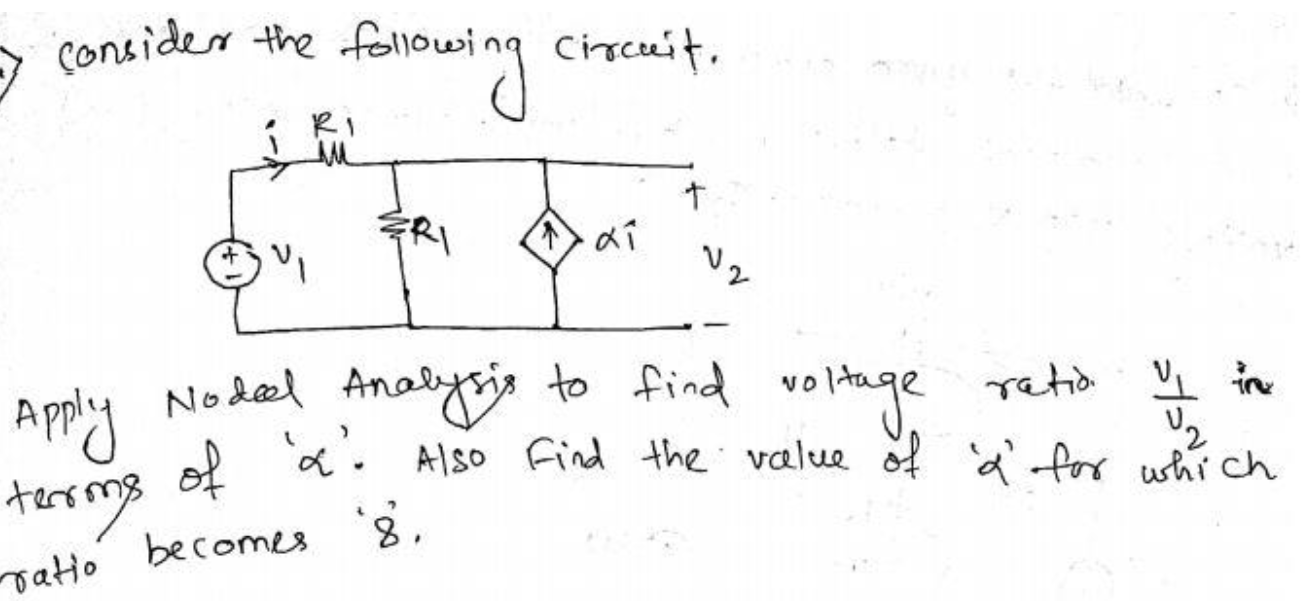 consider the following circuit.
i R1
+
-
V1
R1
αi
+
V2
-
Apply Nodal Analysis to find voltage ratio V1/V2 in
terms of 'α'. Also find the value of 'α' for which
ratio becomes '8'.